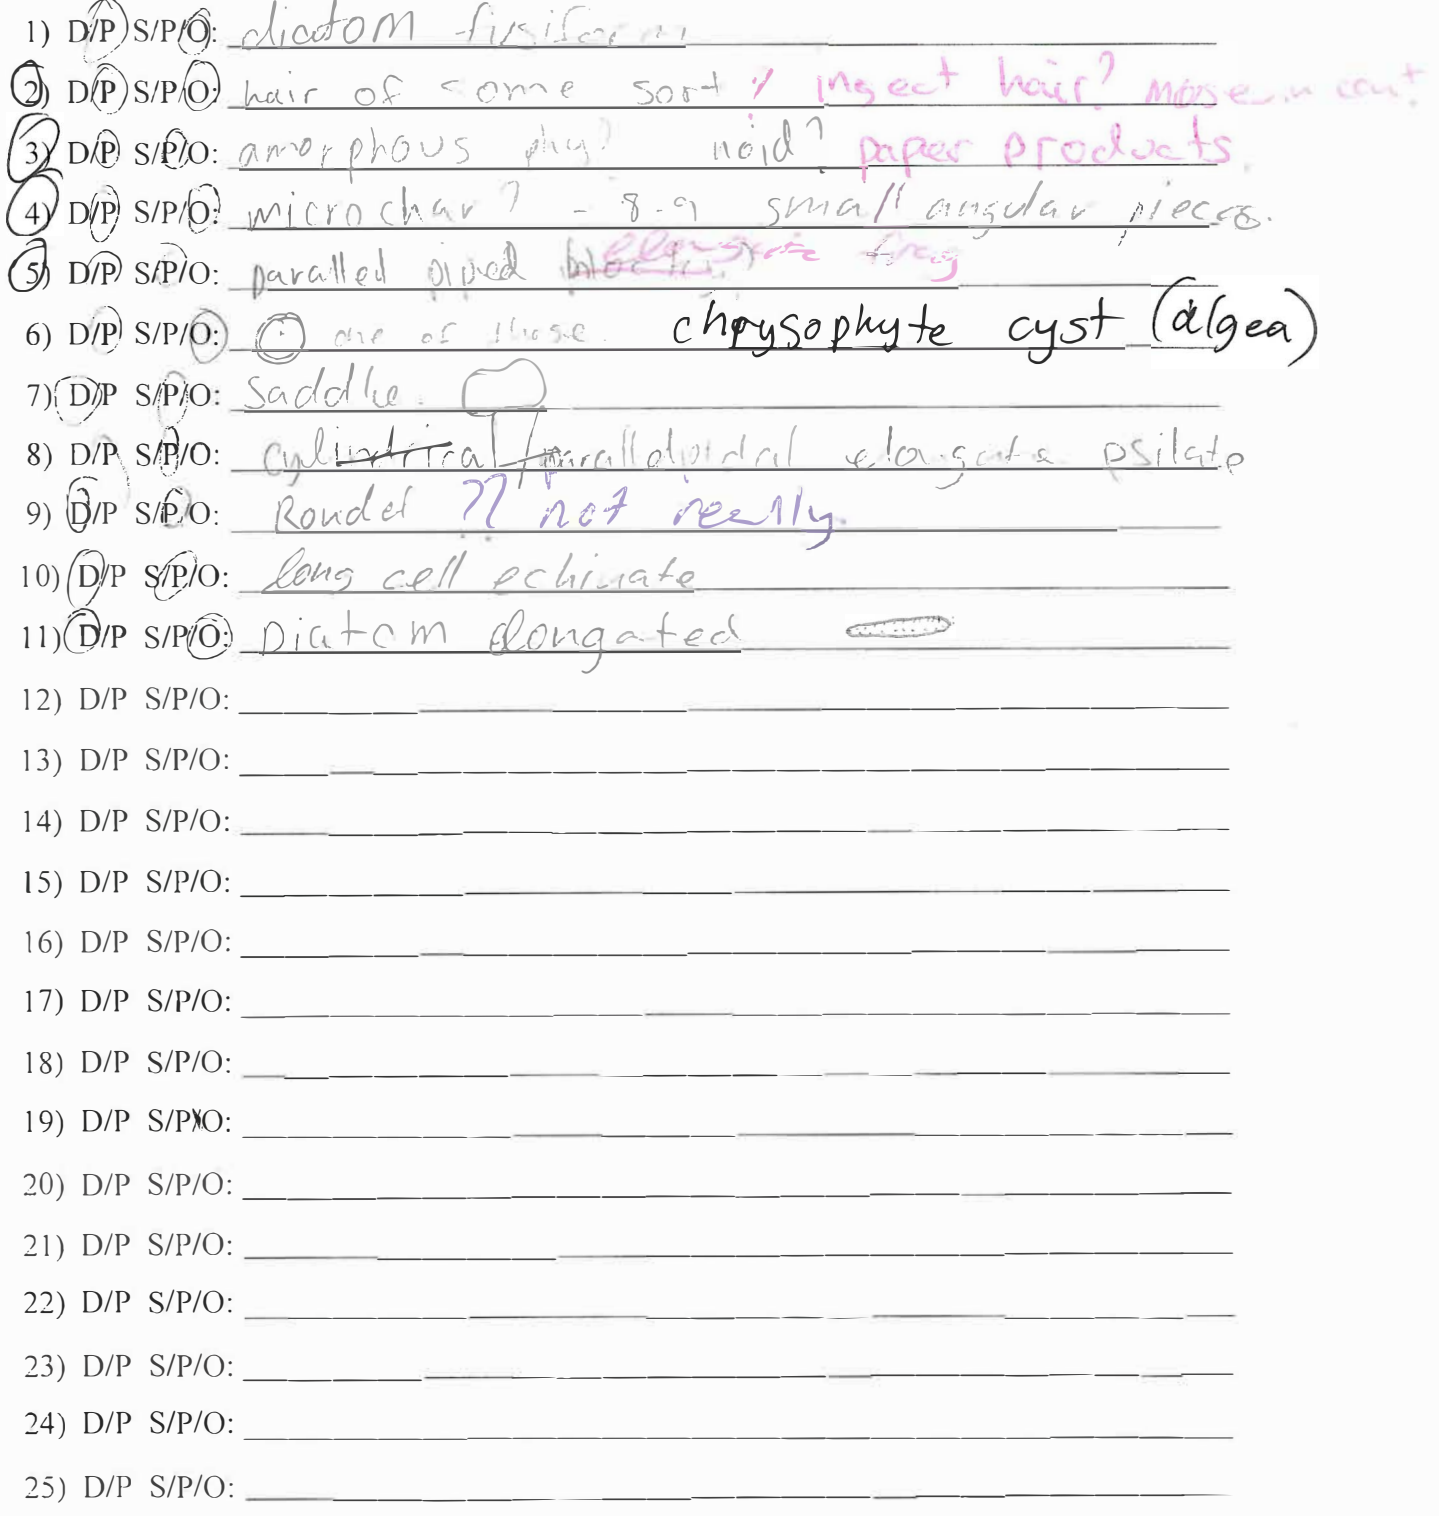 1) D/P S/P/O: diatom fusiform
2) D/P S/P/O: hair of some sort insect hair?
3) D/P S/P/O: amorphous noid? paper products.
4) D/P S/P/O: microchar? - 8-9 small angular pieces.
5) D/P S/P/O: paralled piped elongate frag
6) D/P S/P/O: one of those. chrysophyte cyst (algea)
7) D/P S/P/O: Saddle.
8) D/P S/P/O: cylindrical/paralledpipidal elongate psilate
9) D/P S/P/O: Rondel ?? not really.
10) D/P S/P/O: long cell echinate
11) D/P S/P/O: Diatom elongated
12) D/P S/P/O:
13) D/P S/P/O:
14) D/P S/P/O:
15) D/P S/P/O:
16) D/P S/P/O:
17) D/P S/P/O:
18) D/P S/P/O:
19) D/P S/P/O:
20) D/P S/P/O:
21) D/P S/P/O:
22) D/P S/P/O:
23) D/P S/P/O:
24) D/P S/P/O:
25) D/P S/P/O: